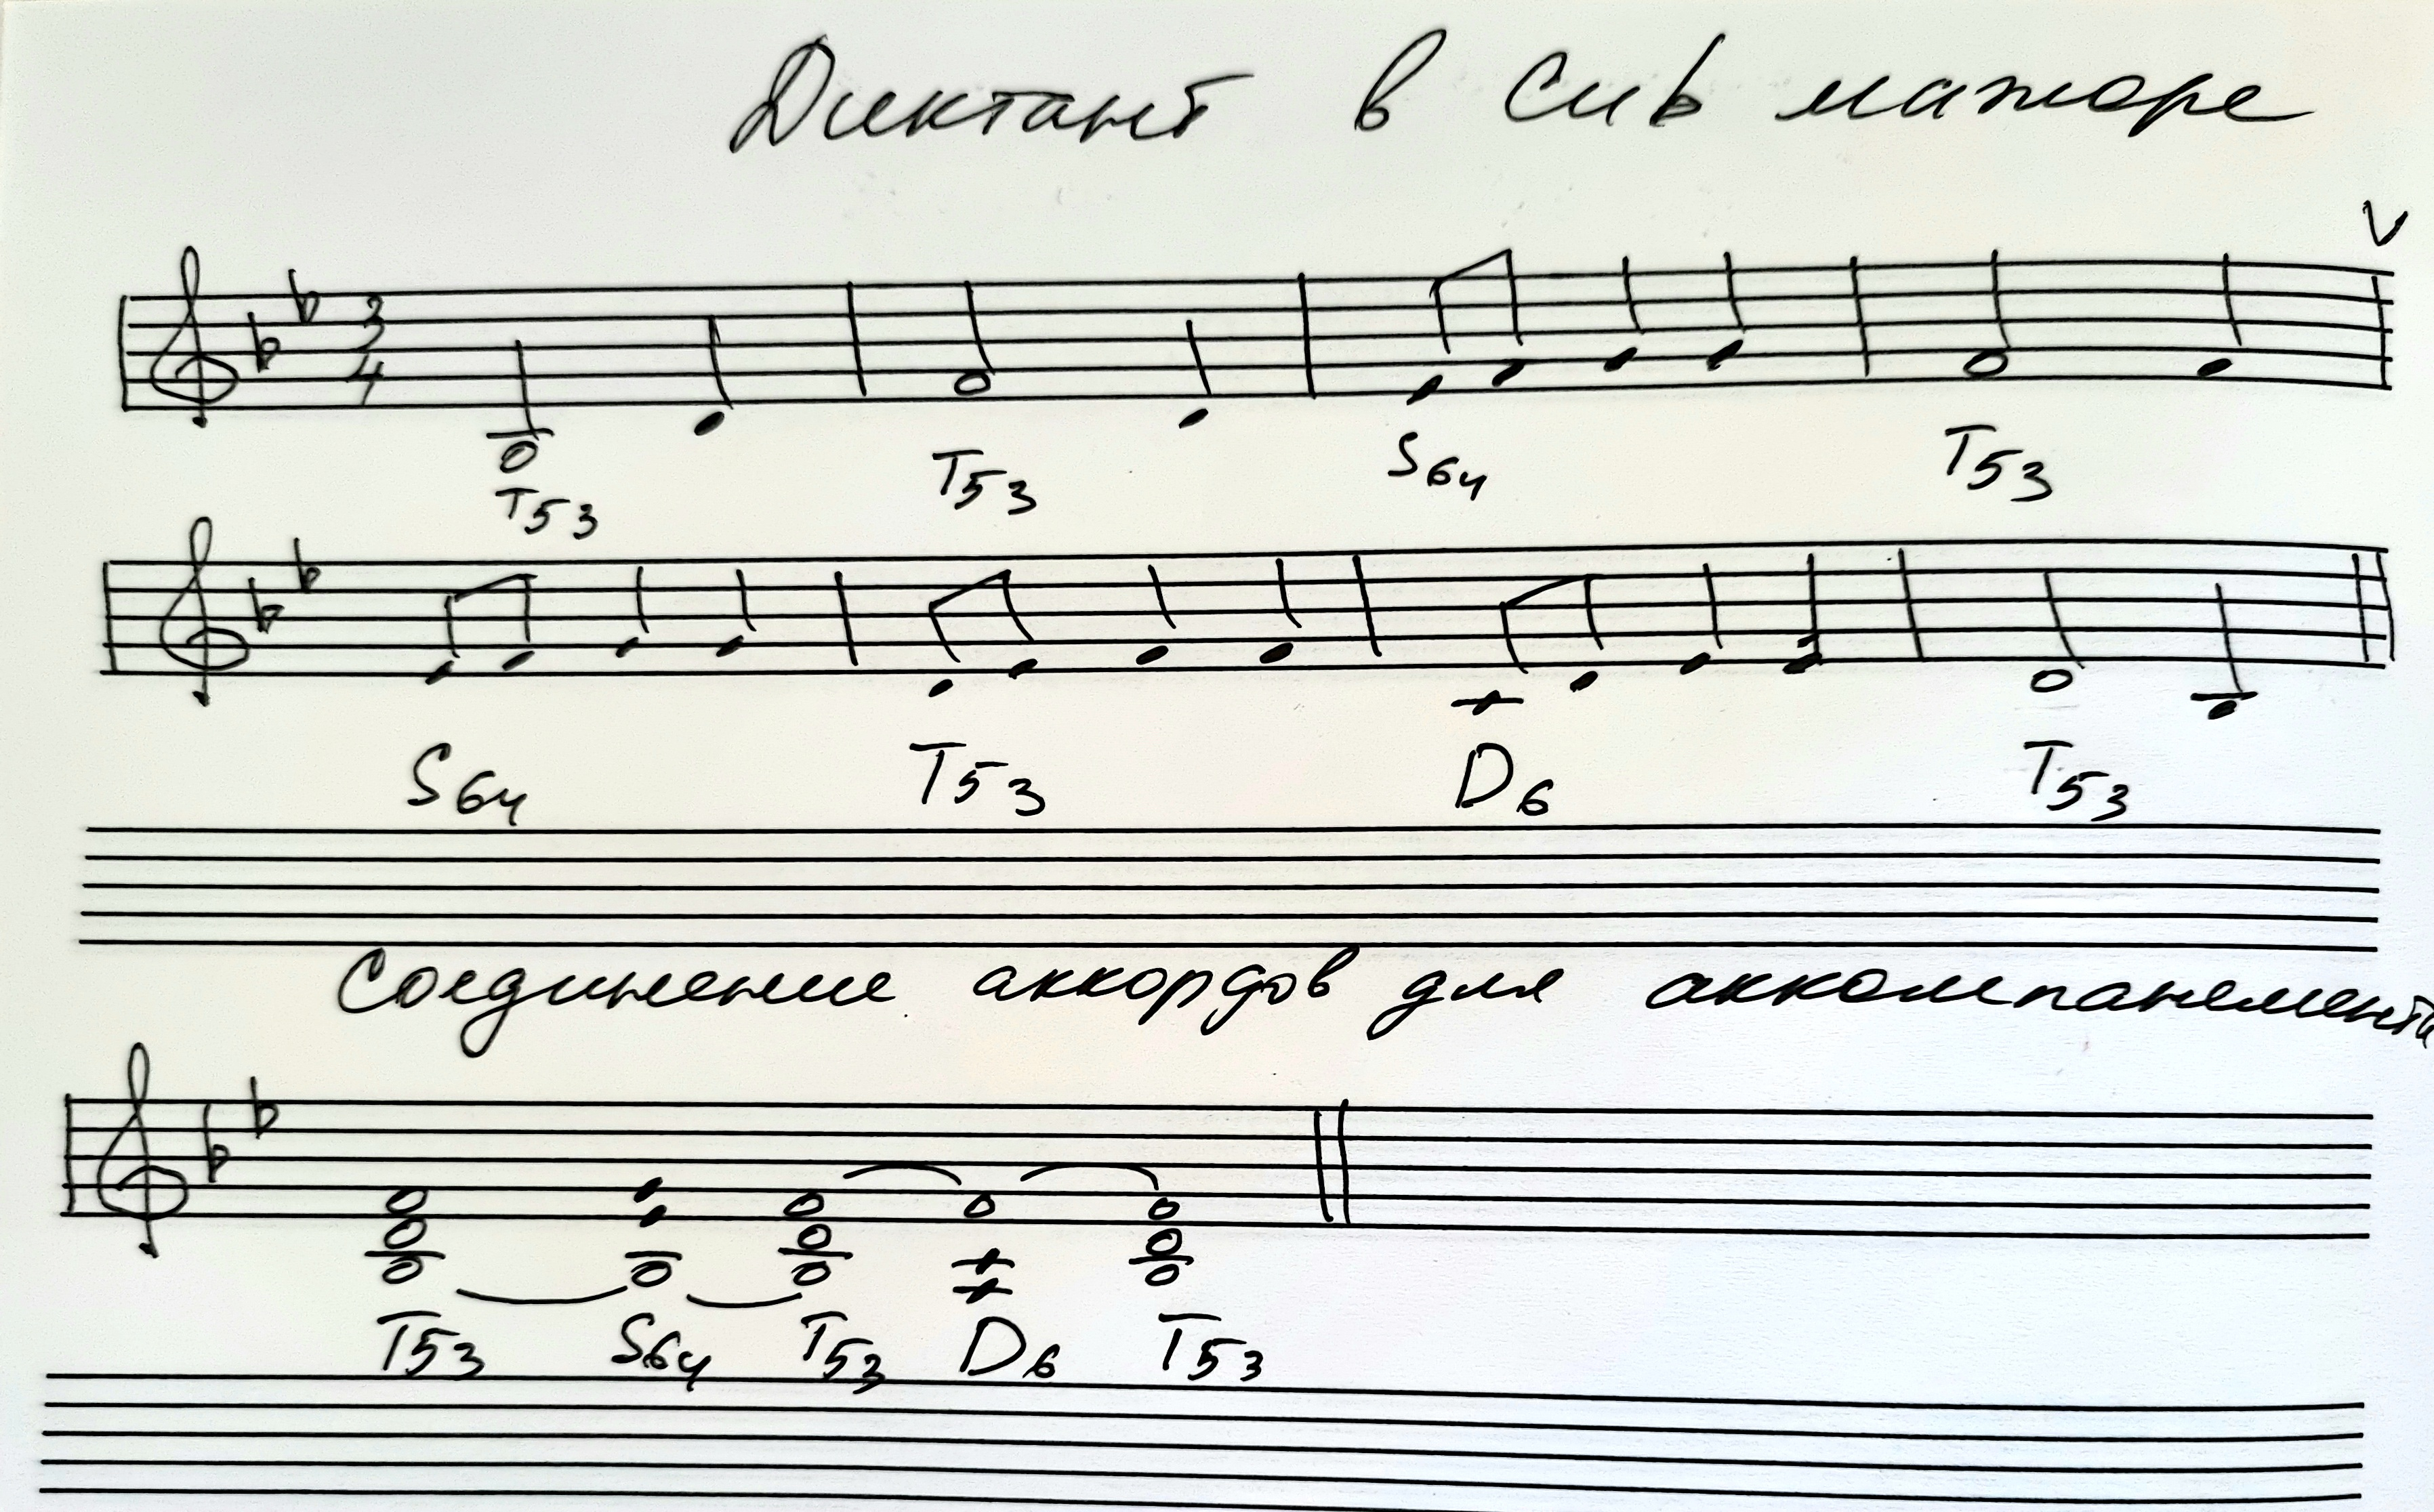 Диктант в Си♭ мажоре
V
3
4
T53 T53 S64 T53
S64 T53 D6 T53
Соединение аккордов для аккомпанемента
T53 S64 T53 D6 T53